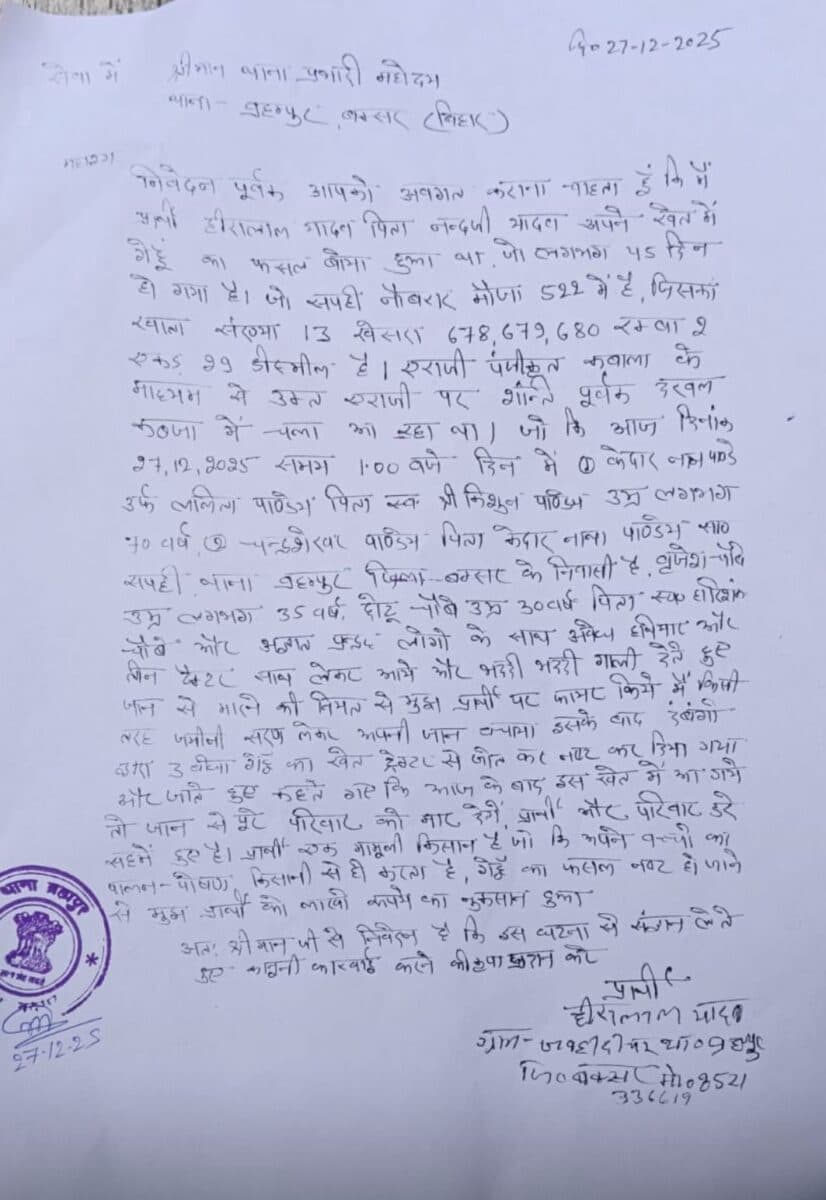 दि० 27-12-2025
सेवा में श्रीमान थाना प्रभारी महोदय
थाना - ब्रहम्पुर, बक्सर (बिहार)
महाशय
निवेदन पूर्वक आपको अवगत कराना चाहता हूं कि मैं
प्रार्थी हीरालाल यादव पिता नन्दजी यादव अपने खेत में
गेहूँ का फसल बोया हुआ था, जो लगभग 45 दिन
हो गया है। जो सपही नौबरार मौजा 522 में है, जिसका
खाता संख्या 13 खेसरा 678,679,680 रकवा 2
एकड़ 29 डीस्मील है। एराजी पंजीकृत कबाला के
माध्यम से उक्त एराजी पर शान्ति पूर्वक दखल
कब्जा में चला आ रहा था। जो कि आज दिनांक
27,12,2025 समय 1.00 बजे दिन में ① केदार नाथ पाण्डे
उर्फ ललिता पाण्डेय पिता स्व श्री किशुन पाण्डेय उम्र लगभग
70 वर्ष, ② चन्द्रशेखर पाण्डेय पिता केदार नाथ पाण्डेय सा०
सपही थाना ब्रहम्पुर जिला-बक्सर के निवासी है, बृजेश चौबे
उम्र लगभग 35 वर्ष, छोटू चौबे उम्र 30 वर्ष पिता स्व०
चौबे और अज्ञात लोगो के साथ अवैध हथियार और
तीन ट्रैक्टर साथ लेकर आये और भद्दी भद्दी गाली देते हुए
जान से मारने की नियत से मुझ प्रार्थी पर फायर किये मैं किसी
तरह जमीनी सरण लेकर अपनी जान बचाया इसके बाद दबंगो
द्वारा 3 बीघा गेहूँ का खेत ट्रैक्टर से जोत कर नष्ट कर दिया गया
और जाते हुए कहते गए कि आज के बाद इस खेत में आ गये
तो जान से पूरे परिवार को मार देगें, प्रार्थी और परिवार डरे
सहमें हुए है। प्रार्थी एक मामूली किसान है जो कि अपने बच्चो का
पालन-पोषण, किसानी से ही करता है, गेहूँ का फसल नष्ट हो जाने
से मुझ प्रार्थी को लाखो रूपये का नुकसान हुआ
अतः श्रीमान जी से निवेदन है कि इस घटना से संज्ञान लेते
हुए कानूनी कारवाई करने की कृपा प्रदान करे
प्रार्थी
हीरालाल यादव
ग्राम- जवहीदीयर था० ब्रह्मपुर
जि० बक्सर मो० 8521
336619
थाना ब्रह्मपुर
27-12-25